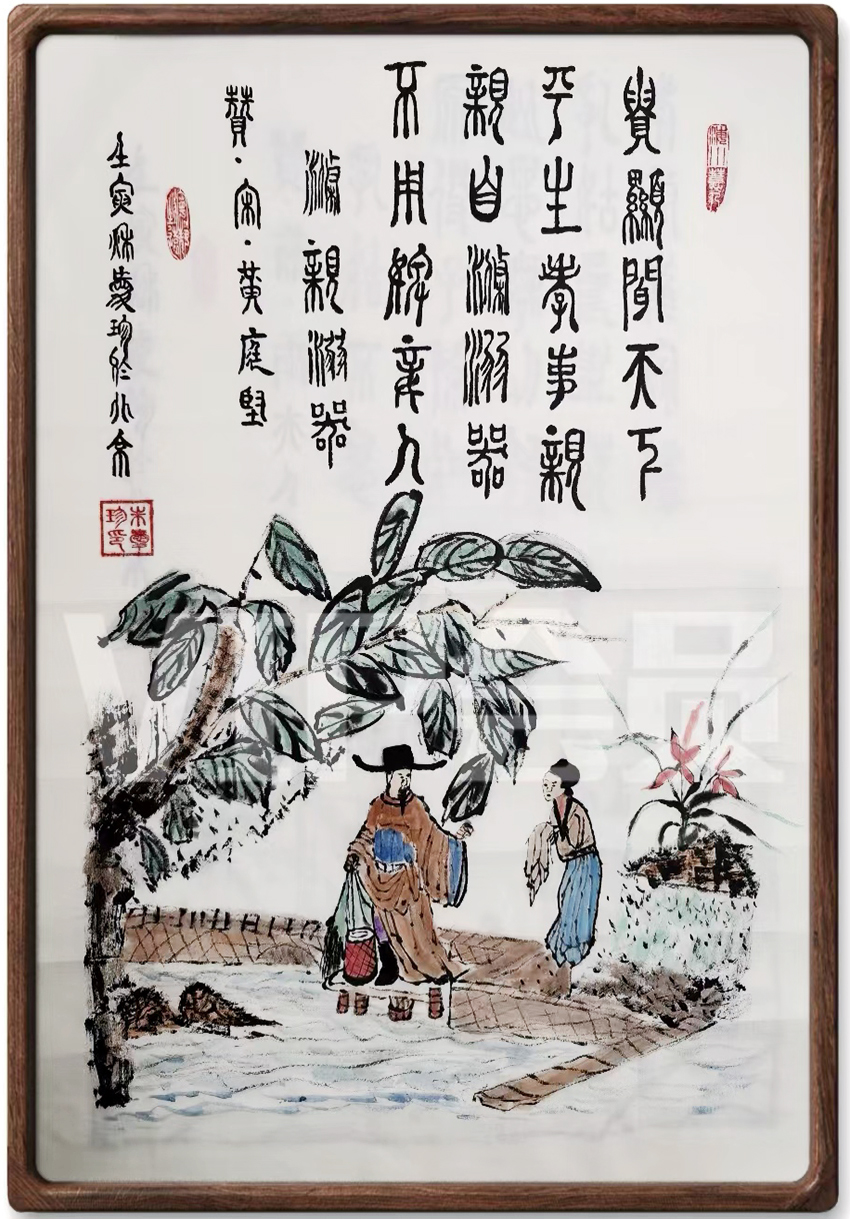 貴顯聞天下
平生孝事親
親自滌溺器
不用婢妾人
滌親溺器
贊·宋·黃庭堅
壬寅秋慶珍於北京
朱慶珍印